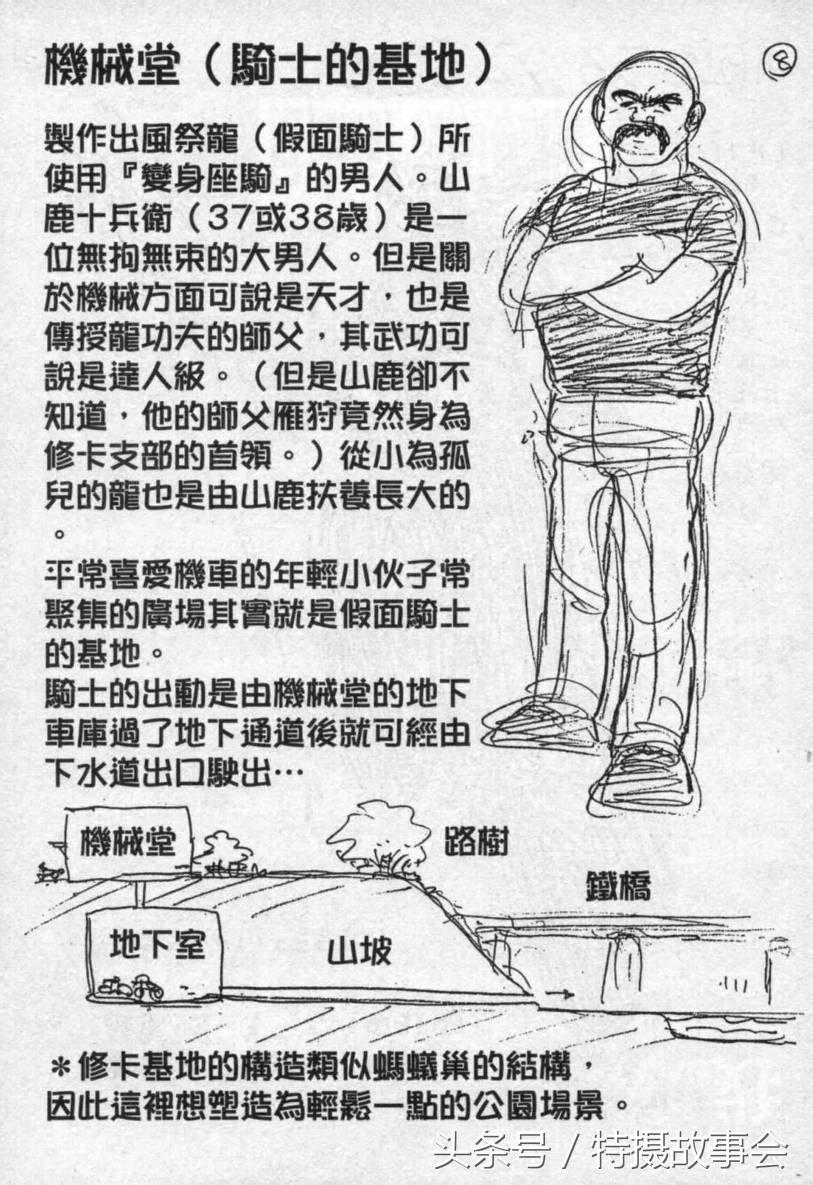 機械堂（騎士的基地）
⑧
製作出風祭龍（假面騎士）所
使用『變身座騎』的男人。山
鹿十兵衛（37或38歲）是一
位無拘無束的大男人。但是關
於機械方面可說是天才，也是
傳授龍功夫的師父，其武功可
說是達人級。（但是山鹿卻不
知道，他的師父雁狩竟然身為
修卡支部的首領。）從小為孤
兒的龍也是由山鹿扶養長大的
。
平常喜愛機車的年輕小伙子常
聚集的廣場其實就是假面騎士
的基地。
騎士的出動是由機械堂的地下
車庫過了地下通道後就可經由
下水道出口駛出…
機械堂
路樹
鐵橋
地下室
山坡
＊修卡基地的構造類似螞蟻巢的結構，
因此這裡想塑造為輕鬆一點的公園場景。
头条号／特摄故事会